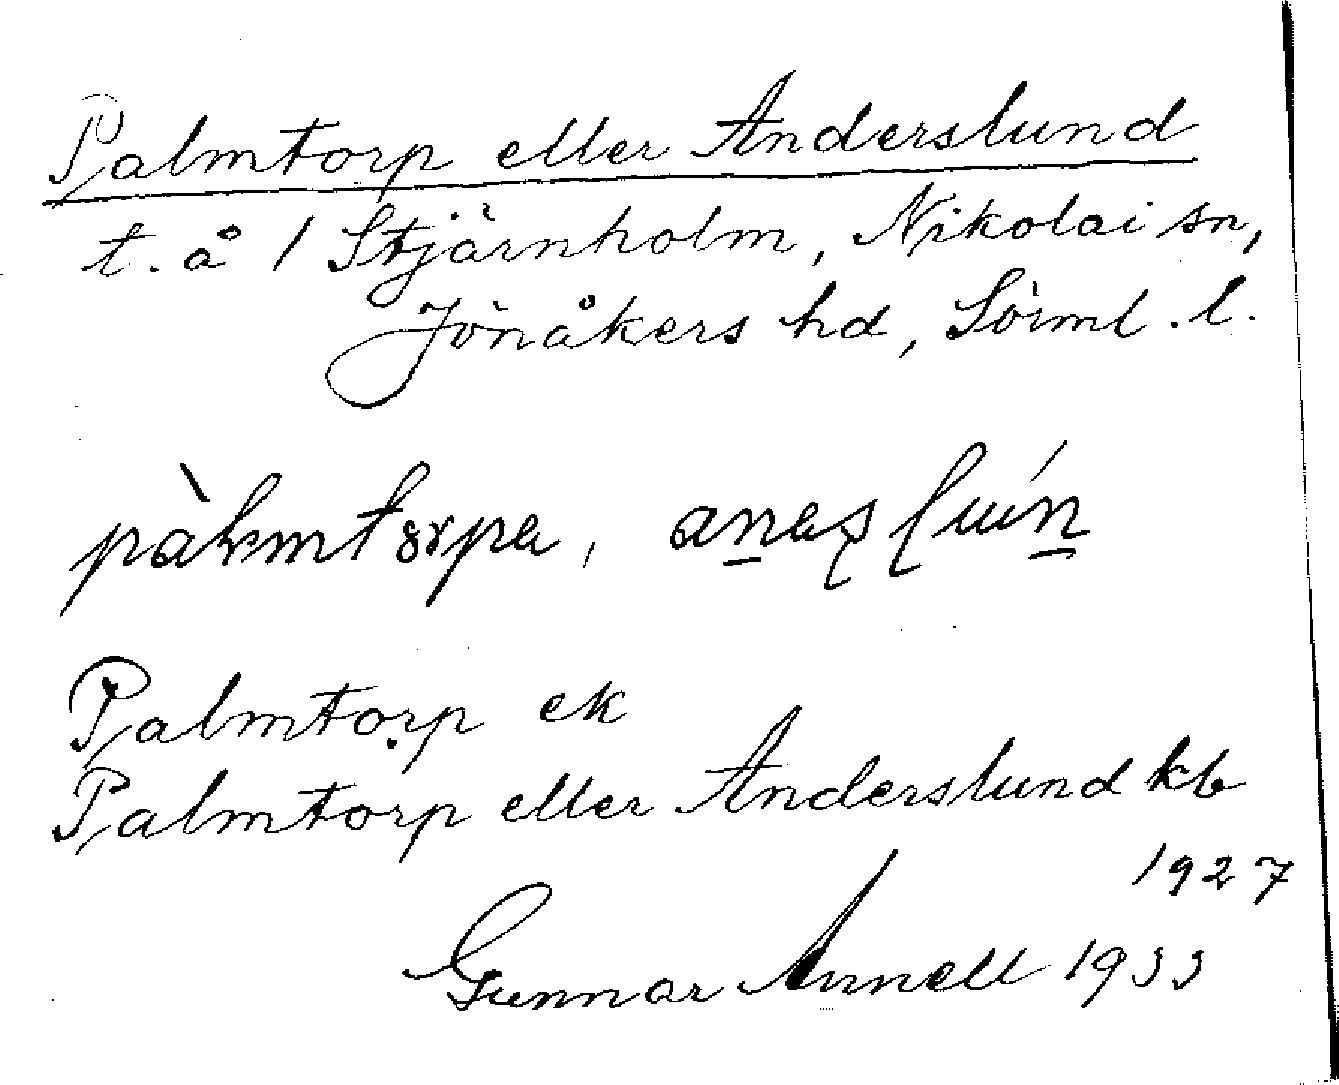 Palmtorp eller Anderslund
t. å 1 Stjärnholm, Nikolai sn,
Jönåkers hd, Sörml. l.
Palmtorp ek
Palmtorp eller Anderslund kb
1927
Gunnar Annell 1933